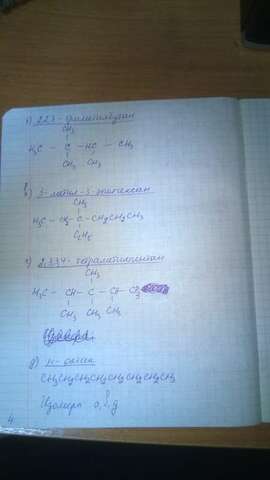 б) 2 2 3 - триметилбутан
CH₃
H₃C - C - HC - CH₃
CH₃ CH₃
в) 3-метил-3-этилгексан
CH₃
H₃C - CH₂ - C - CH₂CH₂CH₃
C₂H₅
г) 2,3 3 4 - тетраметилпентан
CH₃
H₃C - CH - C - CH - CH₃
CH₃ CH₃ CH₃
д) н-октан
CH₃CH₂CH₂CH₂CH₂CH₂CH₂CH₃
Изомеры
4